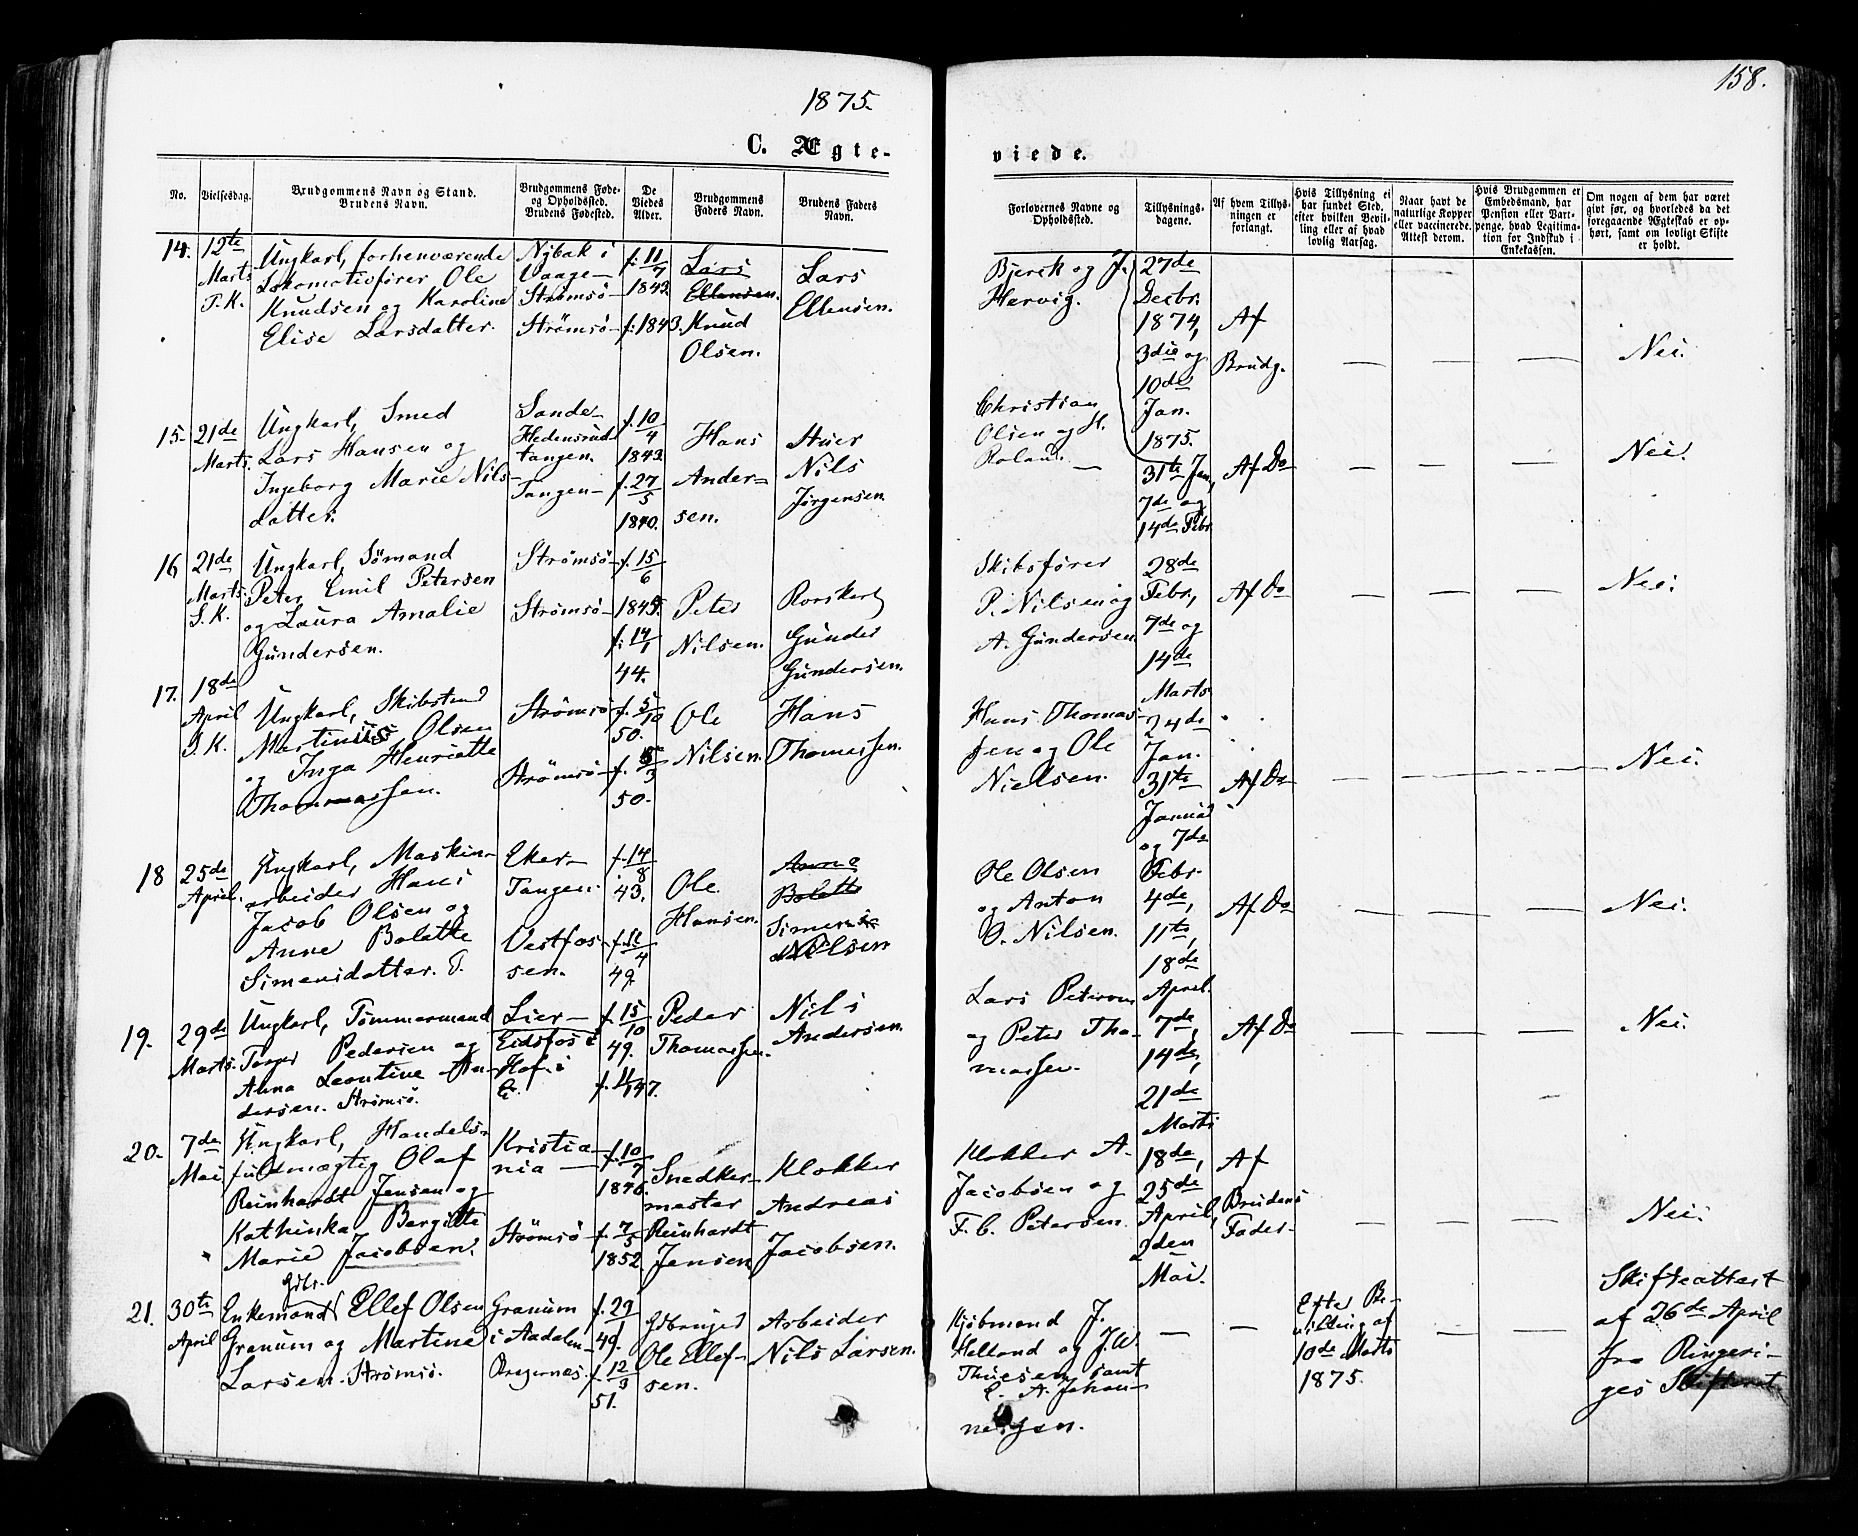 158.
1875.
C. Ægte-
viede.
No.
Vielsesdag.
Brudgommens Navn og Stand.
Brudens Navn.
Brudgommens Føde-
og Opholdssted.
Brudens Fødested.
De
Viedes
Alder.
Brudgommens
Faders Navn.
Brudens Faders
Navn.
Forlovernes Navne og
Opholdssted.
Tillysnings-
dagene.
Af hvem Tillys-
ningen er
forlangt.
Hvis Tillysning ei
har fundet Sted,
efter hvilken Bevil-
ling eller af hvad
lovlig Aarsag.
Naar havt de
naturlige Kopper
eller vaccinerede.
Attest derom.
Hvis Brudgommen er
Embedsmand, har
Pension eller Vart-
penge, hvad Legitima-
tion for Indskud i
Enkekassen.
Om nogen af dem har været
gift før, og hvorledes da det
foregaaende Ægteskab er op-
hørt, samt om lovligt Skifte
er holdt.
14.
12te
Marts
T. K.
Ungkarl, forhenværende
Lokomotivfører Ole
Knudsen og Karoline
Elise Larsdatter.
Nybak i
Vaage-
Strømsø-
Strømsø-
f. 11/7
1843.
f. 1843.
Lars
Ellensen.
Knud
Olsen.
Lars
Ellensen.
Bjerck og J.
Hervig.
27de
Decbr.
1874,
3die og
10de
Jan.
1875.
Af
Brudg.
— — —
Nei.
15.
21de
Marts.
Ungkarl, Smed
Lars Hansen og
Ingeborg Marie Nils-
datter.
Sande-
Hedensrud
tangen.
Tangen-
f. 10/4
1843.
f. 27/5
1840.
Hans
Ander-
sen.
Nils
Jørgensen
Christian
Olsen og H.
31te Jan,
7de og
14de Febr.
Af Do
— — —
Nei.
16
21de
Marts.
S. K.
Ungkarl, Sømand
Peter Emil Petersen
og Laura Amalie
Gundersen.
Strømsø-
Strømsø-
f. 15/6
1845.
f. 14/1
44.
Peter
Nilsen.
Gunder
Gundersen.
Skibsfører
P. Nilsen og
A. Gundersen
28de
Febr.,
7de og
14de
Marts
Af Do
— — —
Nei.
17.
18de
April
S. K.
Ungkarl, Skibstmd
Martinius Olsen
og Inga Henriette
Thommassen.
Strømsø
Strømsø-
f. 5/10
50.
50.
Ole
Nilsen.
Hans
Thomassen.
Hans Thomas-
sen og Ole
Nielsen.
24de
Jan.
31te
Januar
og 7de
Febr.
Af Do
— — —
Nei.
18
25de
April.
Ungkarl, Maskin-
arbeider Hans
Jacob Olsen og
Anne Bolette
Simensdatter. T.
Eker-
Tangen.
Vestfos-
sen.
f. 14/8
43.
f. 11/4
49.
Ole
Hansen.
Anne
Bolette
Simen
Nilsen
Ole Olsen
og Anton
O. Nilsen.
4de,
11te,
18de
April.
Af Do
— — —
Nei.
19.
29de
Marts.
Ungkarl, Tømmermand
Torger Pedersen og
Anna Leontine An-
dersen. Strømsø.
Lier-
Eidsfos i
Hof i
f. 15/10
49.
Peder
Thomassen.
Nils
Andersen.
Lars Peterson
og Peter Tho-
massen.
7de,
14de,
21de
Marts
Af Do
— — —
Nei.
20.
7de
Mai
Ungkarl, Handels-
fuldmægtig Olaf
Reinhardt Jensen og
Kathinka Bergitte
Marie Jacobsen.
Kristia-
nia —
Strømsø-
f. 10/7
1846.
f. 7/5
1852.
Snedker-
mester
Reinhardt
Jensen
Klokker
Andreas
Jacobsen.
Klokker A.
Jacobsen og
F. C. Petersen.
18de,
25de
April,
2den
Mai.
Af
Brudens
Fader-
— — —
Nei.
21.
30te
April
Gdbr.
Enkemand Ellef Olsen
Granum og Martine
Larsen. Strømsø.
Granum
i Aadalen-
Bragernæs.
f. 29/1
49.
f. 12/3
51.
Gdbruger
Ole Ellef-
sen.
Arbeider
Nils Larsen.
Kjøbmand J.
Helland og J. W.
Thuesen samt
C. A. Johan-
nessen.
— —
Efter Be-
villing af
10de Marts
1875.
— —
Skifteattest
af 26de April
fra Ringeri-
ges Skifteret